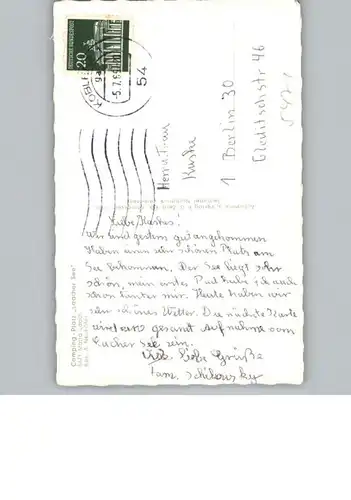 Liebe Kustes!
Wir sind gestern gut angekommen
Haben einen sehr schönen Platz am
See bekommen. Der See liegt sehr
schön, mein erstes Bad habe ich auch
schon hinter mir. Heute haben wir
sehr schönes Wetter. Die nächste Karte
wird eine gesamt Aufnahme vom
Laacher See sein.
Viele liebe Grüße
Fam. Schikowsky
Herrn u. Frau
Kuste
1 Berlin 30
Gleditschstr 46
Camping-Platz „Laacher See"
DEUTSCHE BUNDESPOST
20
KOBLENZ
-5.7.69
54